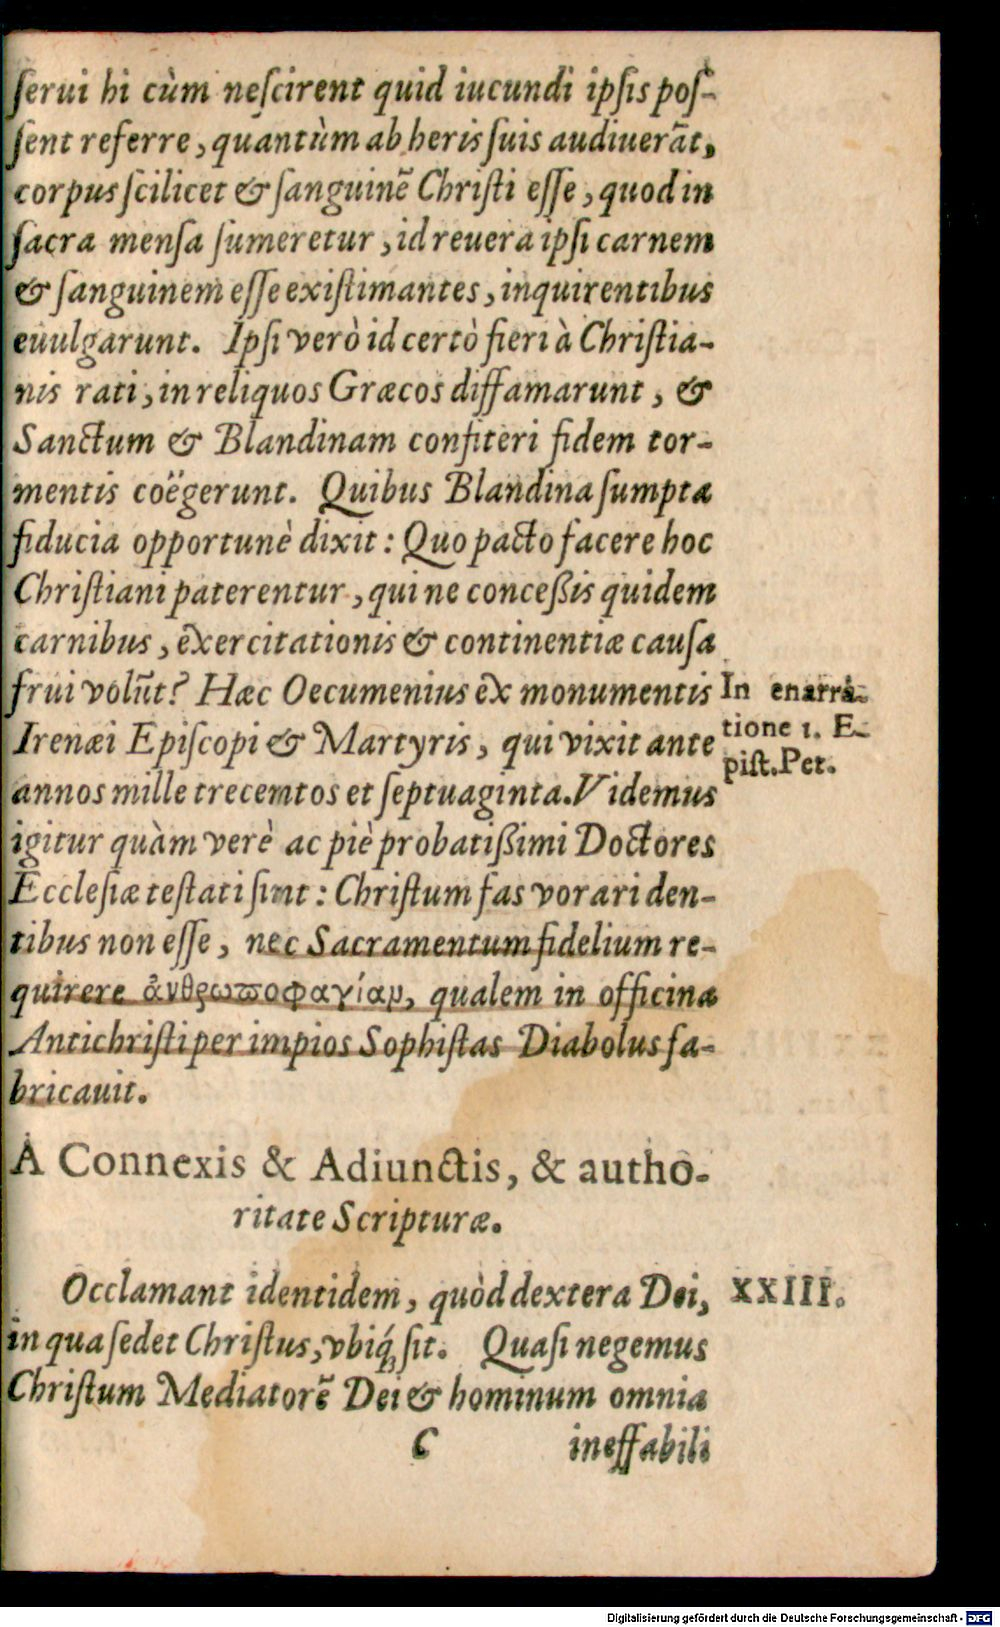 ſerui hi cùm neſcirent quid iucundi ipſis poſ-
ſent referre, quantùm ab heris ſuis audiuerãt,
corpus ſcilicet & ſanguinẽ Chriſti eſſe, quod in
ſacra menſa ſumeretur, id reuera ipſi carnem
& ſanguinem eſſe exiſtimantes, inquirentibus
euulgarunt. Ipſi verò id certò fieri à Chriſtia-
nis rati, in reliquos Græcos diffamarunt, &
Sanctum & Blandinam confiteri fidem tor-
mentis coëgerunt. Quibus Blandina ſumpta
fiducia opportunè dixit: Quo pacto facere hoc
Chriſtiani paterentur, qui ne conceßis quidem
carnibus, exercitationis & continentiæ cauſa
frui volũt? Hæc Oecumenius ex monumentis
In enarra-
Irenæi Epiſcopi & Martyris, qui vixit ante
tione 1. E-
piſt. Pet.
annos mille trecentos et ſeptuaginta. Videmus
igitur quàm verè ac piè probatißimi Doctores
Eccleſiæ teſtati ſint: Chriſtum fas vorari den-
tibus non eſſe, nec Sacramentum fidelium re-
quirere ἀνθρωποφαγίαμ, qualem in officina
Antichriſti per impios Sophiſtas Diabolus fa-
bricauit.
A Connexis & Adiunctis, & autho-
ritate Scripturæ.
Occlamant identidem, quòd dextera Dei,
XXIII.
in qua ſedet Chriſtus, vbiq́; ſit. Quaſi negemus
Chriſtum Mediatorẽ Dei & hominum omnia
C
ineffabili
Digitalisierung gefördert durch die Deutsche Forschungsgemeinschaft - DFG